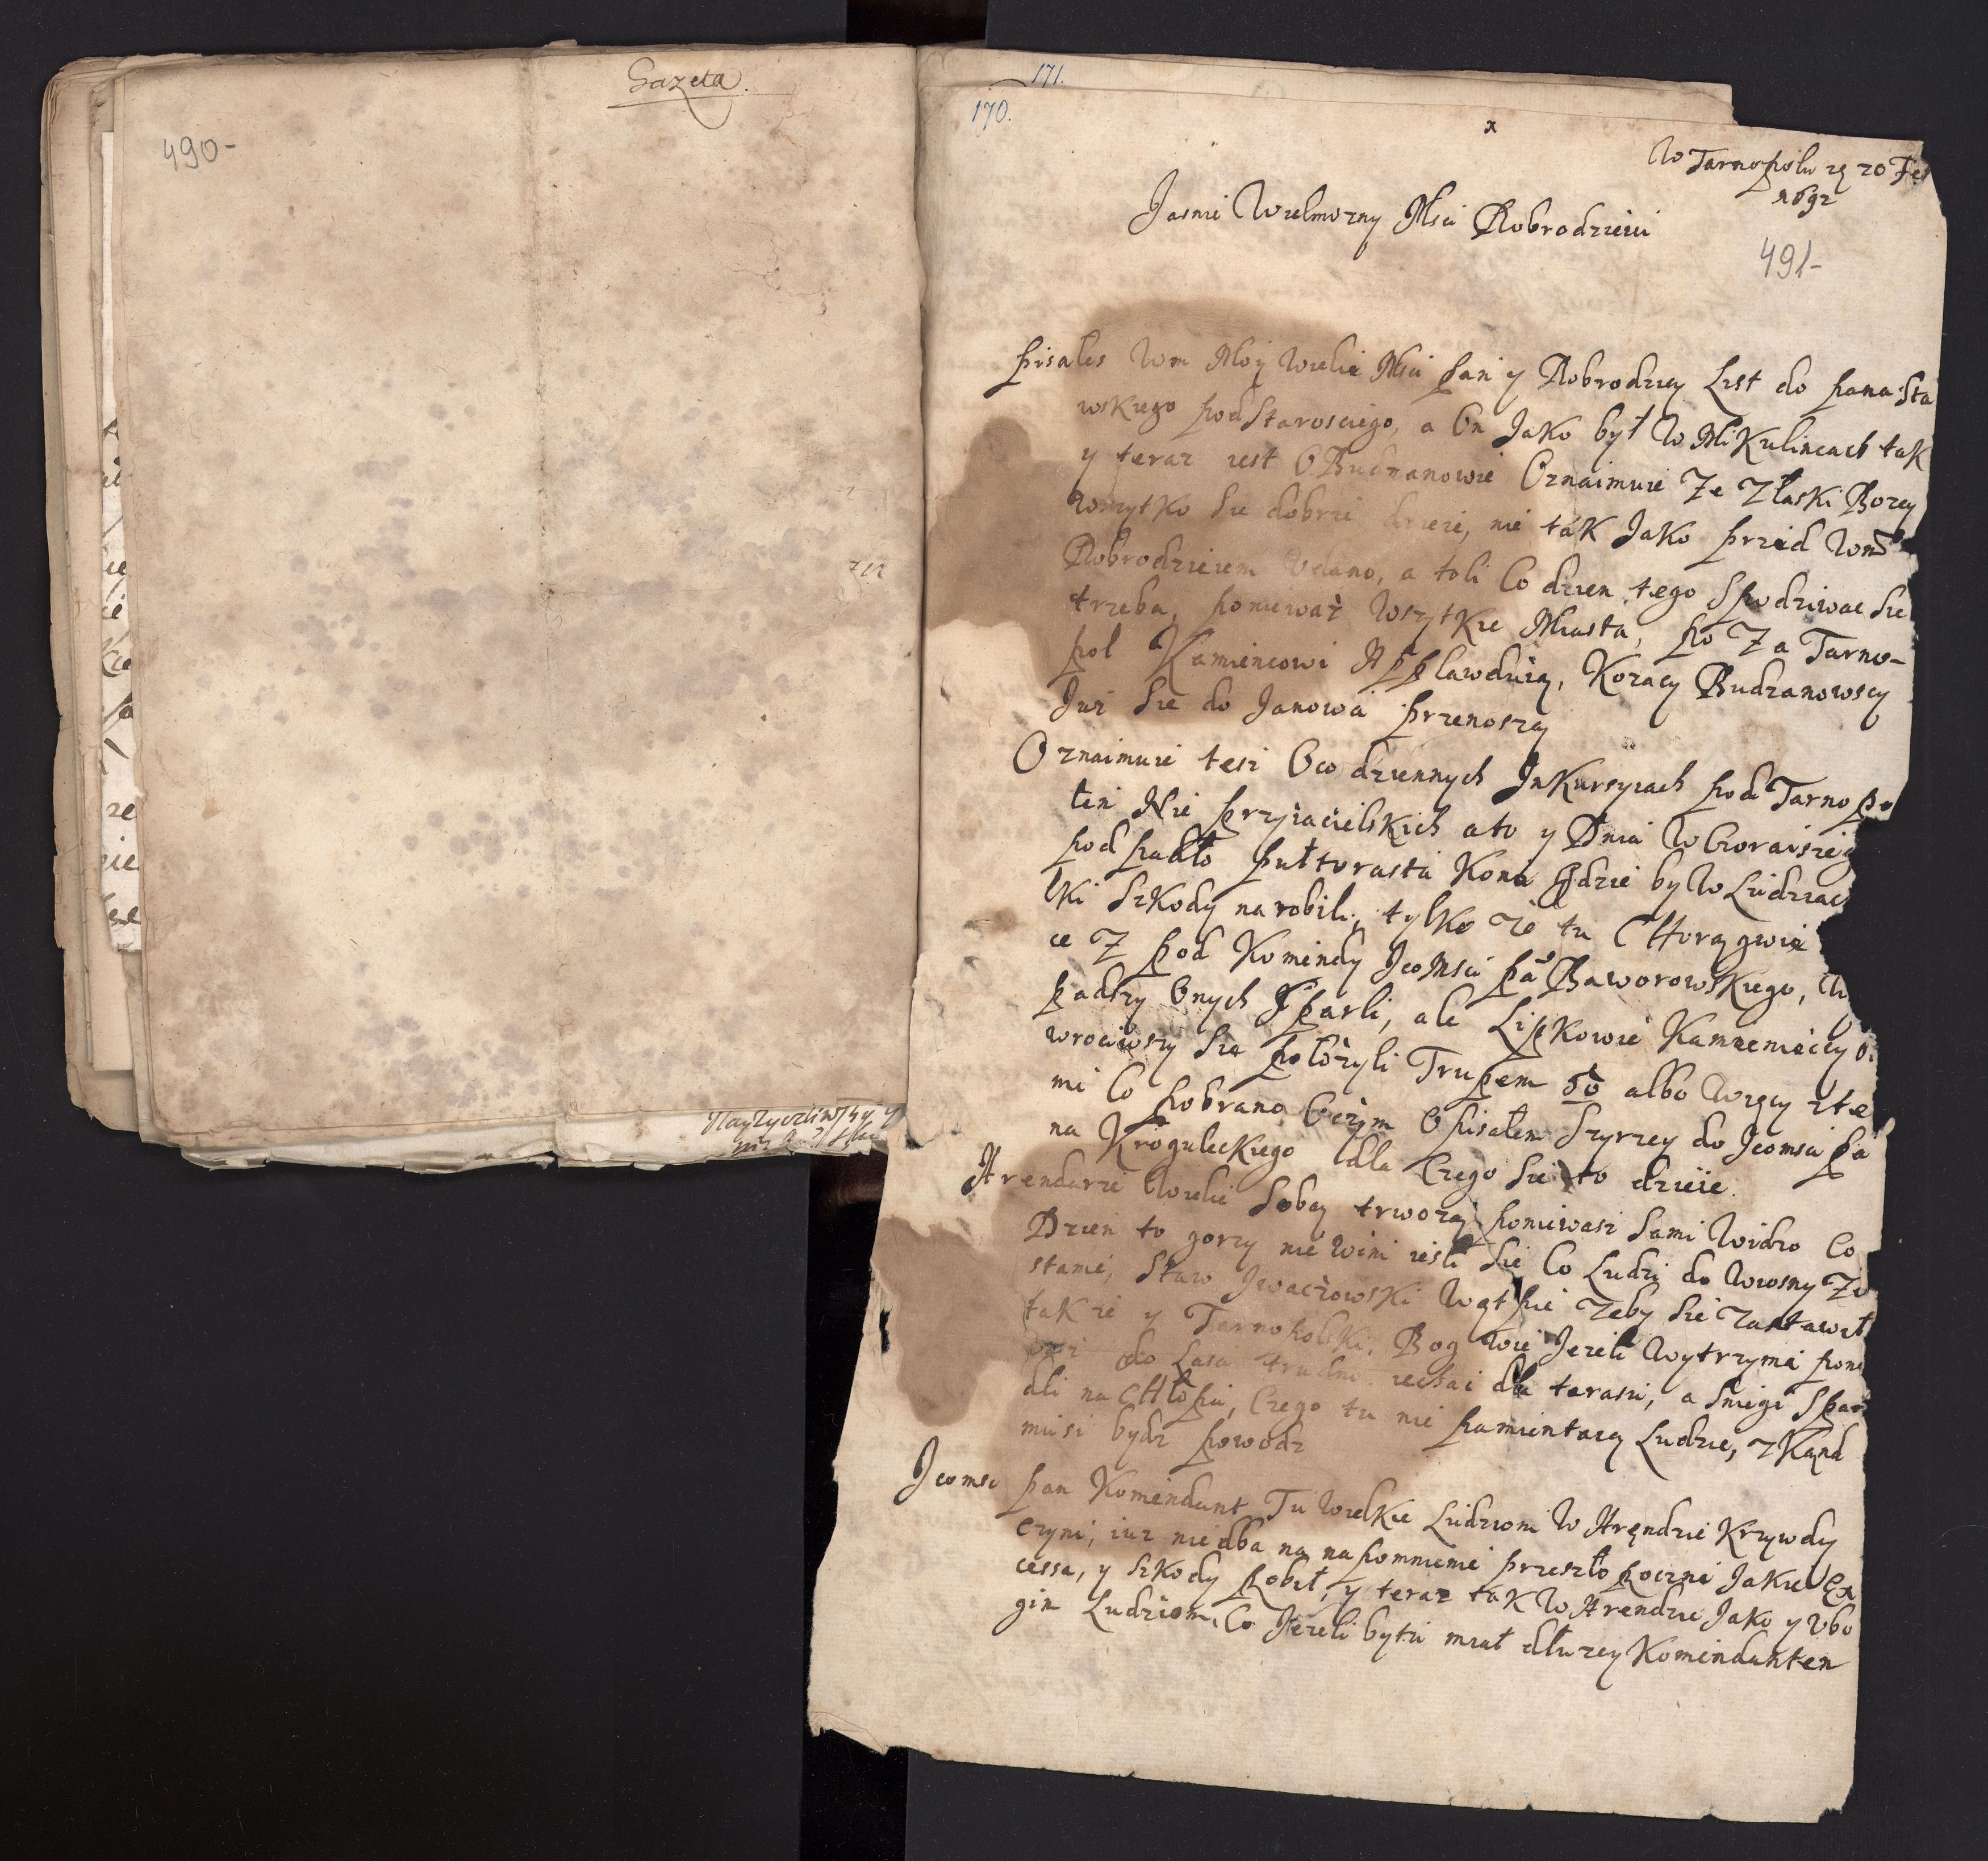 Gazeta.
490-
171.
170.
x
W Tarnopolu 29 20 Fe
1692
Jasnie Wielmozny Msci Dobrodzieiu
491-
Pisałes Wm Moy Wielce Msci Pan y Dobrodziey List do Pana Sta
wskiego podStarosciego, a On Jako był W Mikulincach tak
y teraz iest O Budzanowie Oznaimuie Ze Złaski Bozey
wszytko Sie dobrze dzieie, nie tak Jako Przed Wm
Dobrodzieiem Udano, a toli Co dzien tego Spodziwac Sie
trzeba, poniewaz Wszytkie Miasta, po Za Tarno-
pol Kamiencowi Applawduią, Kozacy Budzanowscy
Juz Sie do Janowa Przenoszą
Oznaimuie tesz Oco dziennych Inkursyiach pod Tarnopo
lem Nie Przyiacielskich ato y Dnia Wczoraiszego
podpadło Pułtorasta Koni Gdzie by W Ludziach
lki Szkody narobili, tylko ze tu CHorągwie
ce Z pod Komendy Jeomsci Pa Baworowskiego,
padszy Onych Sparli, ale Lipkowie Kamienieccy
wrociwszy Sie połozyli Trupem 60 albo Więcy zte
mi Co pobrano Oczym Opisałem Szyrzey do Jeomsci Pa
na Kroguleckiego dla Czego Sie to dzieie.
Arendarze Wielie Sobą trwozą poniewasz Sami Widzo Co
Dzien to gorzy nie Wim iesli Sie Co Ludzi do Wiosny Zo
stanie, Staw Jwaczowski Wątpie Zeby Sie Zastawił
takze y Tarnopolski, Bog Wie Jezeli Wytrzyma poni
do Lasa trudni iechac dla tarasu, a Sniegi Spa
dli na CHłopa, Czego tu nie pamientaią Ludzie, Zkąnd
musi bydz powodz
Jeomsc Pan Komendant Tu Wielkie Ludziom W Arendzie Krzywdy
czyni, iuz niedba na napomnienie Przeszło poczne Jakie Ex
cessa, y Szkody Robił, y teraz tak W Arendzie Jako y Vbo
gim Ludziom, Co Jezeli bytu miał dłuzey Komendanten